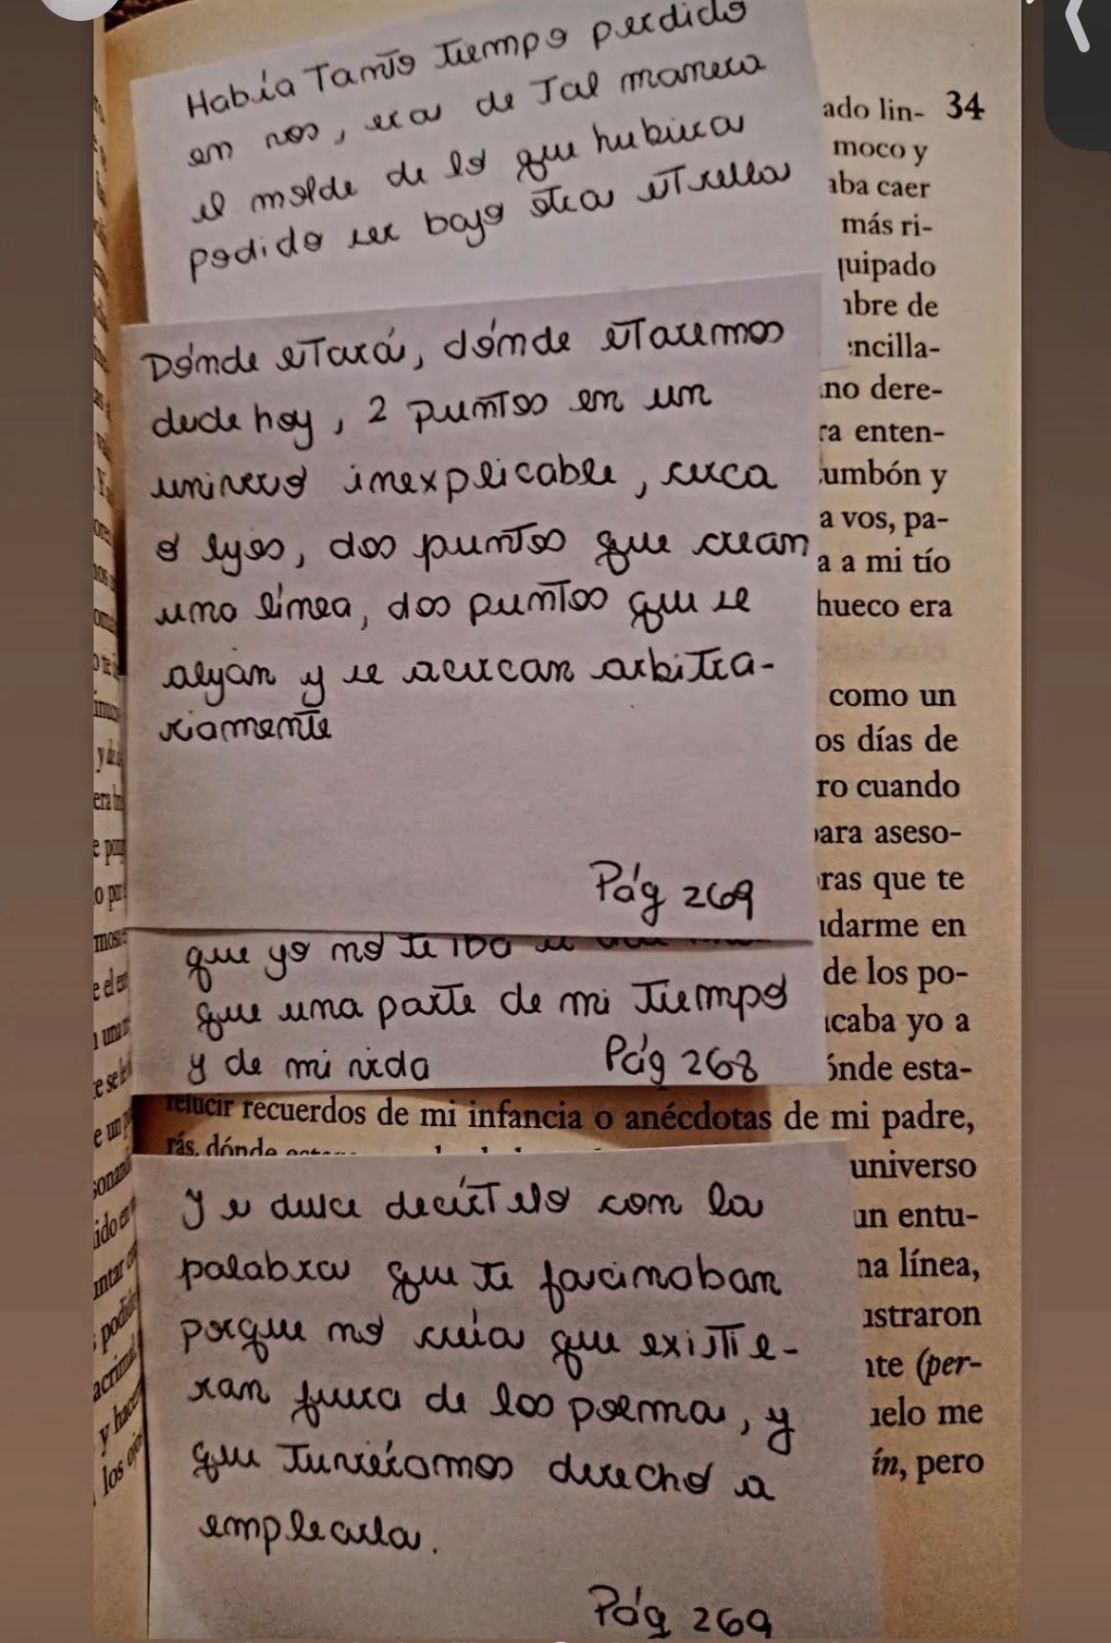 Había Tanto Tiempo perdido
en vos, eras de Tal manera
el molde de lo que hubieras
podido ser bajo otras esTrellas
Dónde esTará, dónde esTaremos
desde hoy, 2 punTos en un
universo inexplicable, cerca
o lejos, dos punTos que crean
una línea, dos punTos que se
alejan y se acercan arbiTra-
riamenTe
Pág 269
que yo no te iba a
que una parTe de mi Tiempo
y de mi vida Pág 268
Y es dulce decírTelo con las
palabras que Te fascinaban
porque no creías que exisTie-
ran fuera de los poemas, y
que Tuviéramos derecho a
emplearlas.
Pág 269
ado lin- 34
moco y
aba caer
más ri-
quipado
bre de
encilla-
no dere-
ra enten-
umbón y
a vos, pa-
a a mi tío
hueco era
como un
os días de
ro cuando
para aseso-
ras que te
darme en
de los po-
caba yo a
ónde esta-
relucir recuerdos de mi infancia o anécdotas de mi padre,
rás, dónde
universo
un entu-
na línea,
straron
te (per-
uelo me
ín, pero